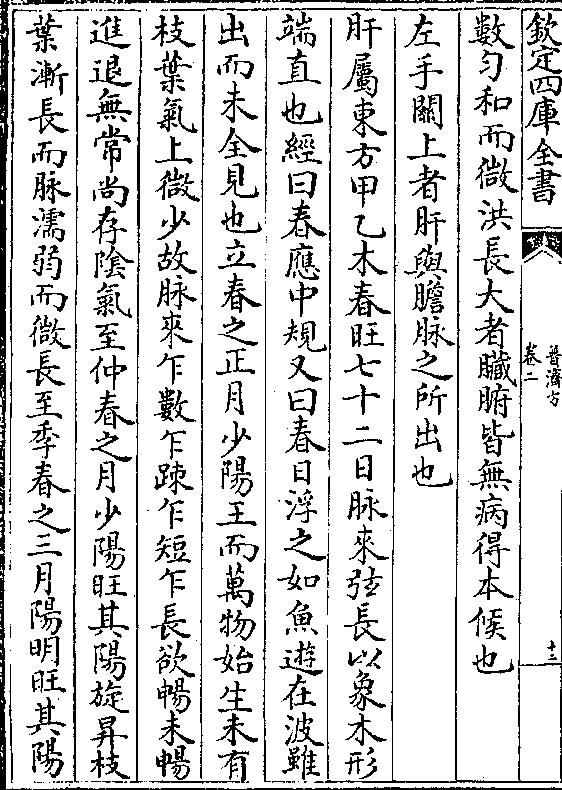 欽定四庫全書
普濟方
卷二
十三
數匀和而微洪長大者臟腑皆無病得本候也
左手關上者肝與膽脉之所出也
肝屬東方甲乙木春旺七十二日脉來弦長以象木形
端直也經曰春應中規又曰春日浮之如魚遊在波雖
出而未全見也立春之正月少陽王而萬物始生未有
枝葉氣上微少故脉來乍數乍踈乍短乍長欲暢未暢
進退無常尚存隂氣至仲春之月少陽旺其陽旋昇枝
葉漸長而脉濡弱而微長至季春之三月陽明旺其陽